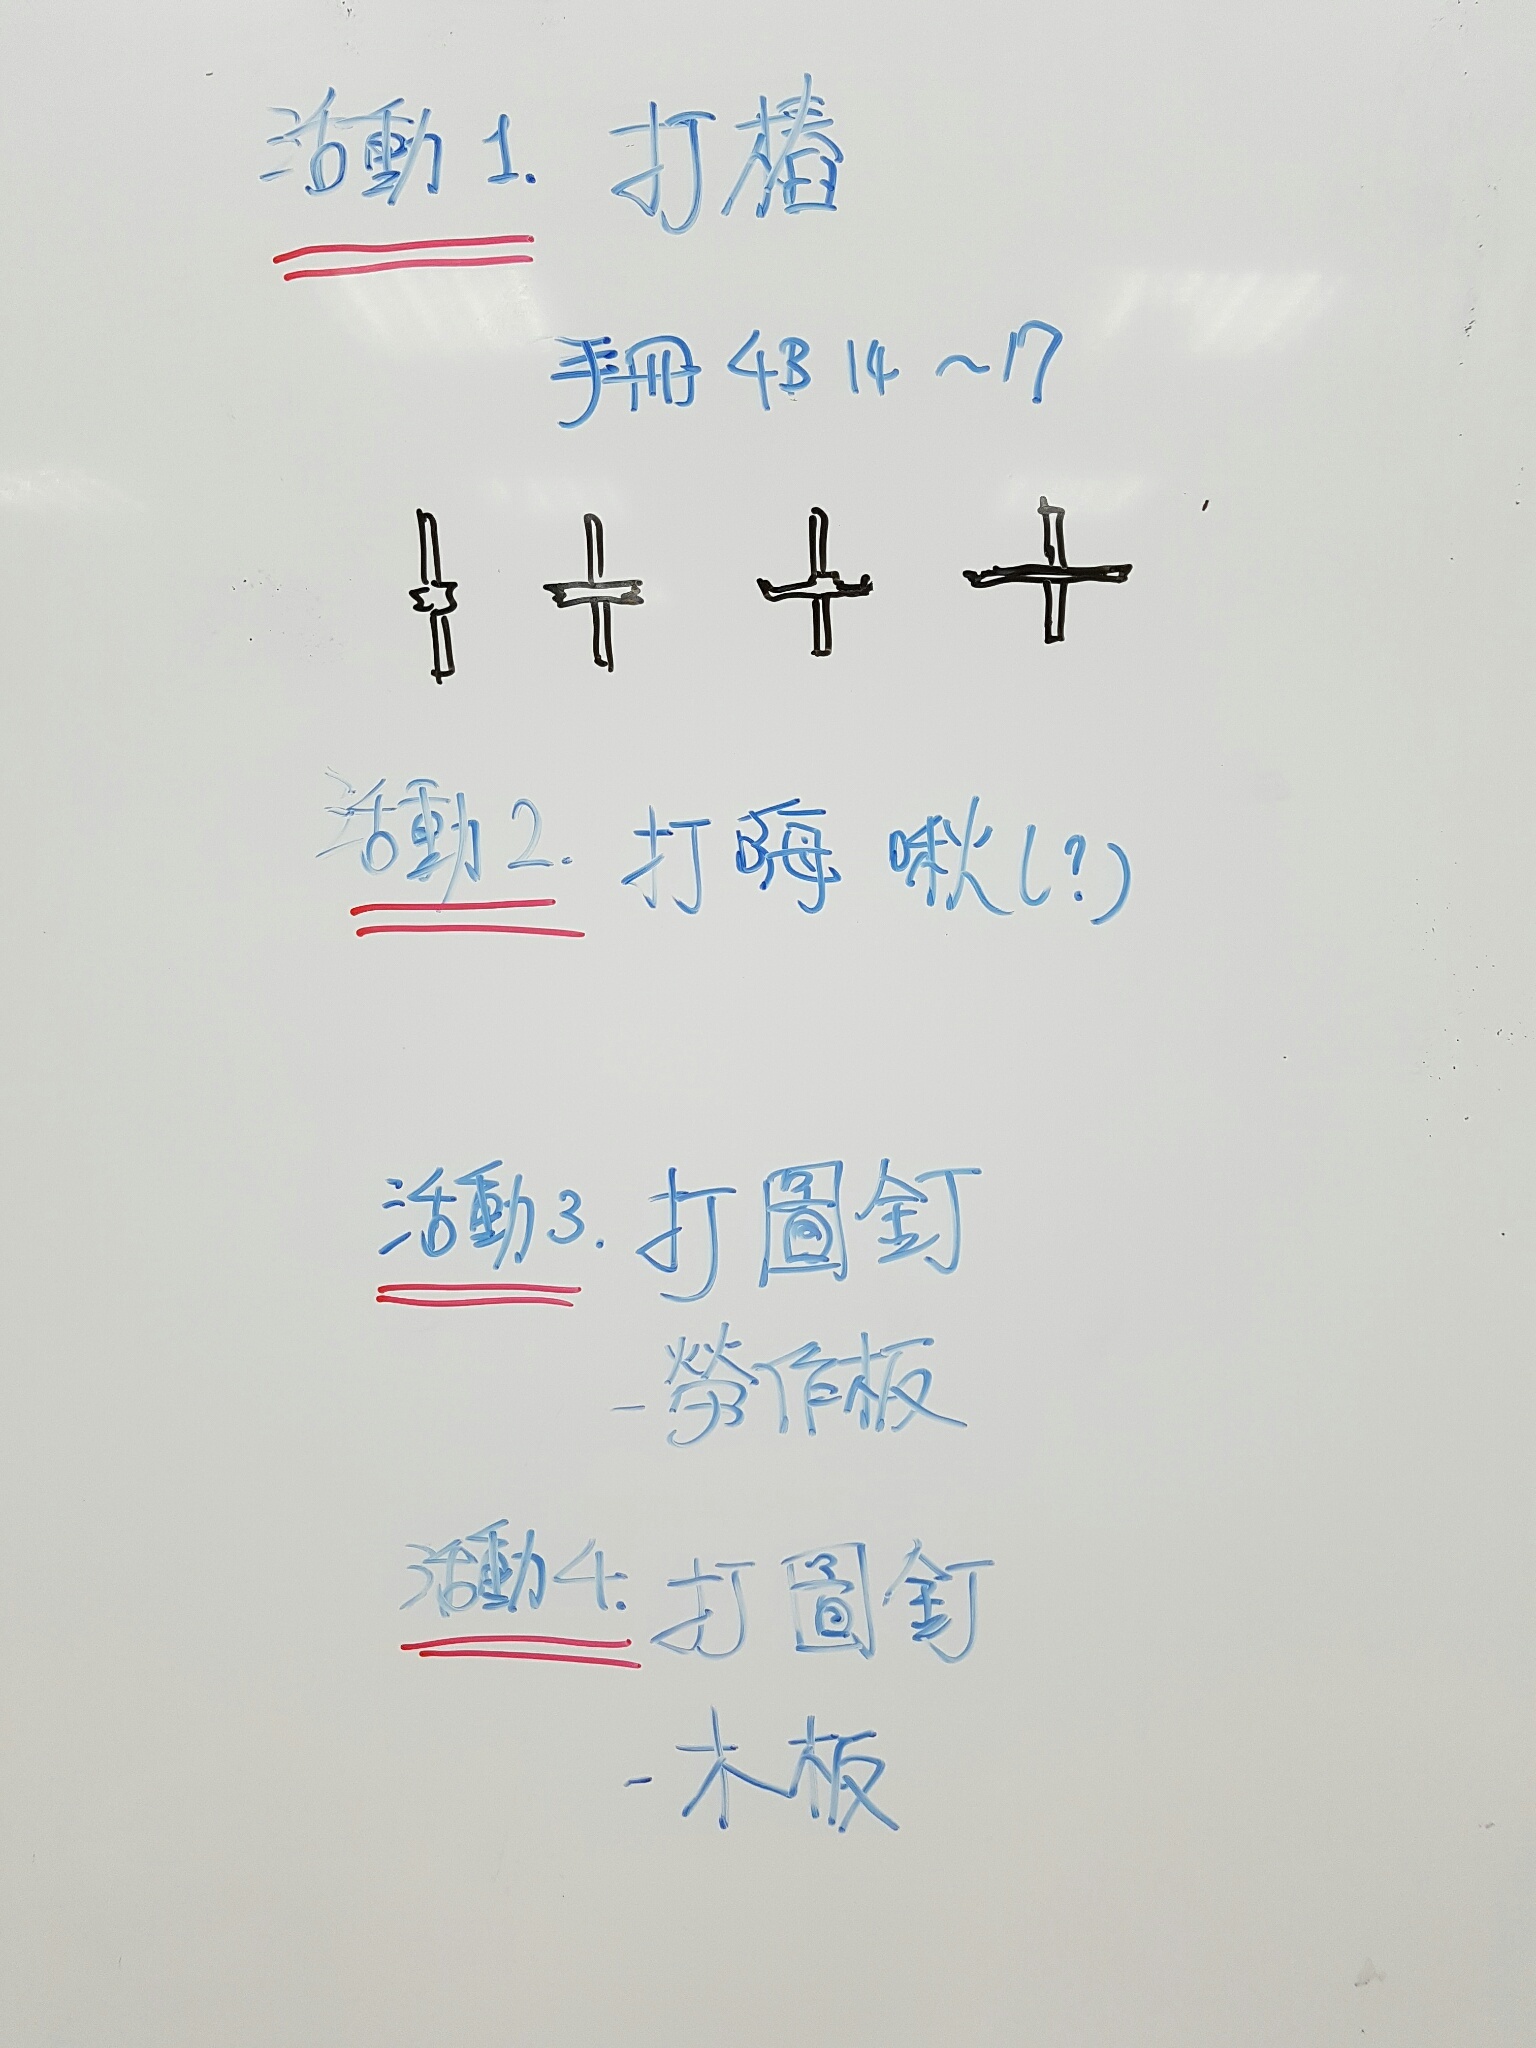 活動1. 打樁
手冊 4B 14 ~17
活動2. 打噚 啾(?)
活動3. 打圖釘
-勞作板
活動4. 打圖釘
-木板